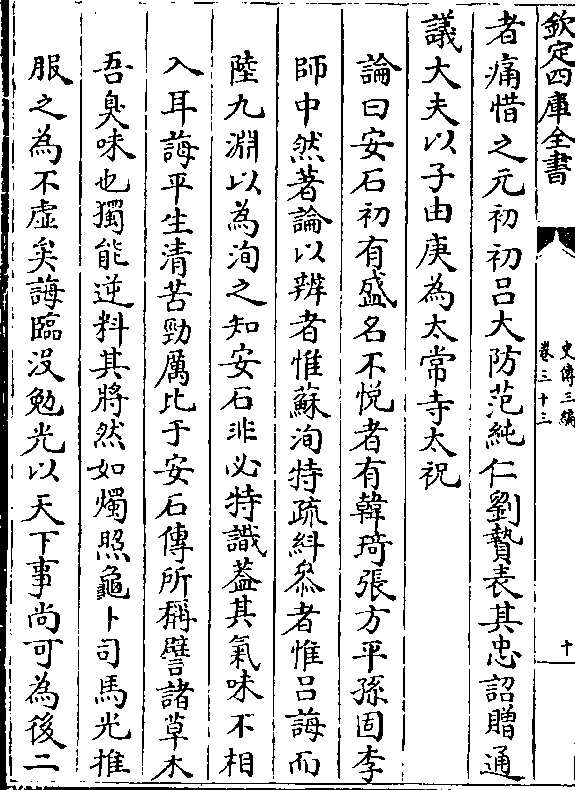 欽定四庫全書
史傳三編
卷三十三
十
者痛惜之元初初呂大防范純仁劉贄表其忠詔贈通
議大夫以子由庚為太常寺太祝
論曰安石初有盛名不悅者有韓琦張方平孫固李
師中然著論以辨者惟蘇洵特疏糾叅者惟呂誨而
陸九淵以為洵之知安石非必特識蓋其氣味不相
入耳誨平生清苦勁厲比于安石傳所稱譬諸草木
吾臭味也獨能逆料其將然如燭照龜卜司馬光推
服之為不虛矣誨臨沒勉光以天下事尚可為後二